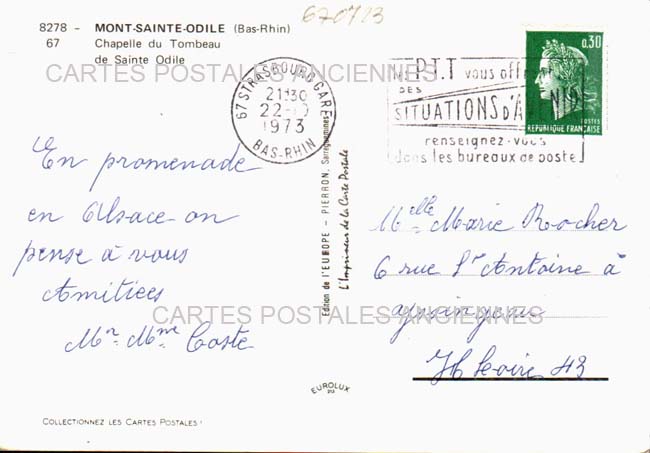 8278 - MONT-SAINTE-ODILE (Bas-Rhin)
67 Chapelle du Tombeau
de Sainte Odile
670723
CARTES POSTALES ANCIENNES
67 STRASBOURG GARE
21H30
22-10
1973
BAS-RHIN
les P.T.T vous offrent
DES
SITUATIONS d'AVENIR
renseignez-vous
dans les bureaux de poste
0,30
POSTES
REPUBLIQUE FRANÇAISE
En promenade
en Alsace on
pense à vous
Amitiées
Mr Mme Coste
Edition de l'EUROPE - PIERRON, Sarreguemines
L'Imprimeur de la Carte Postale
Melle Marie Rocher
6 rue St Antoine à
Yssingeaux
Hte Loire 43
CARTES POSTALES ANCIENNES
EUROLUX
COLLECTIONNEZ LES CARTES POSTALES !